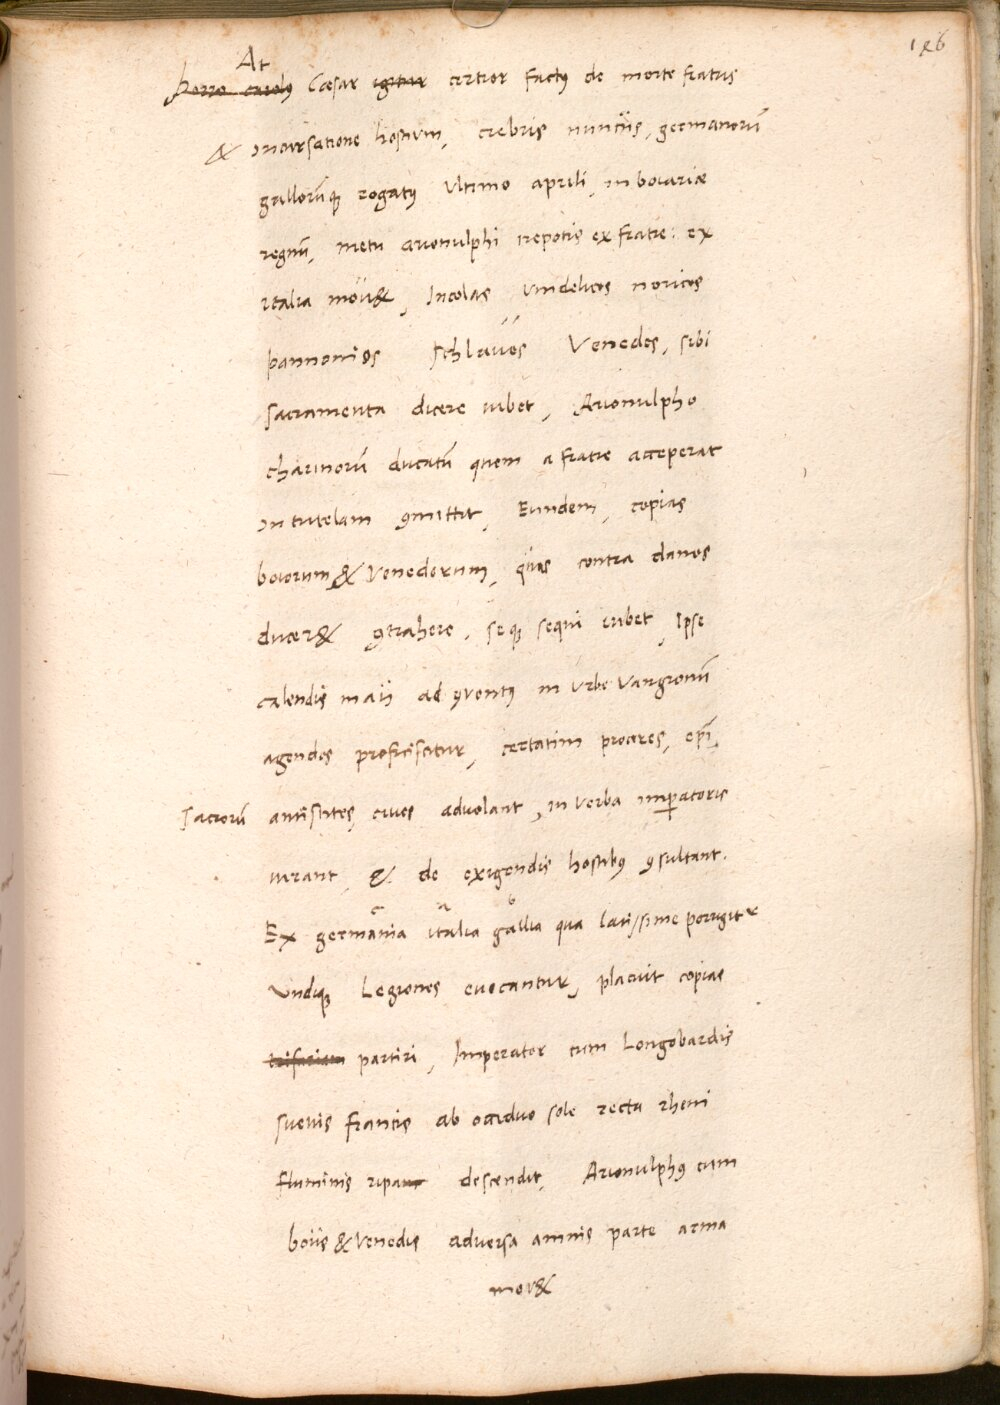 126
At
Porro carolus Cæsar igitur certior factus de morte fratris
& incursatione hostium, crebris nuntiis, germanorū
gallorūq; rogatus ultimo aprili, in boiariæ
regnū, metu arionulphi nepotis ex fratre: ex
italia mou&, Incolas vindelicos noricos
pannonios Schlauos Venedos, sibi
sacramenta dicere iubet, Arionulpho
charinorū ducatū quem a fratre acceperat
in tutelam ꝯmittit, Eundem, copias
boiorum & Venedorum, quas contra danos
ducer& ꝯtrahere, seq; sequi iubet, Ipse
calendis maij ad ꝯventus in urbe Vangionū
agendos proficiscitur, certatim proceres, ep̄i,
Sacrorū antistites, ciues aduolant, in verba imꝑatoris
iurant, & de exigendis hostibus ꝯsultant.
Ex germania italia gallia qua latissime porrigitur
undiq; Legiones euocantur, placuit copias
trifariam partiri, Imperator cum Longobardis
sueuis francis ab occiduo sole recta rheni
fluminis ripam descendit, Arionulphus cum
boiis & Venedis aduersa amnis parte arma
mou&